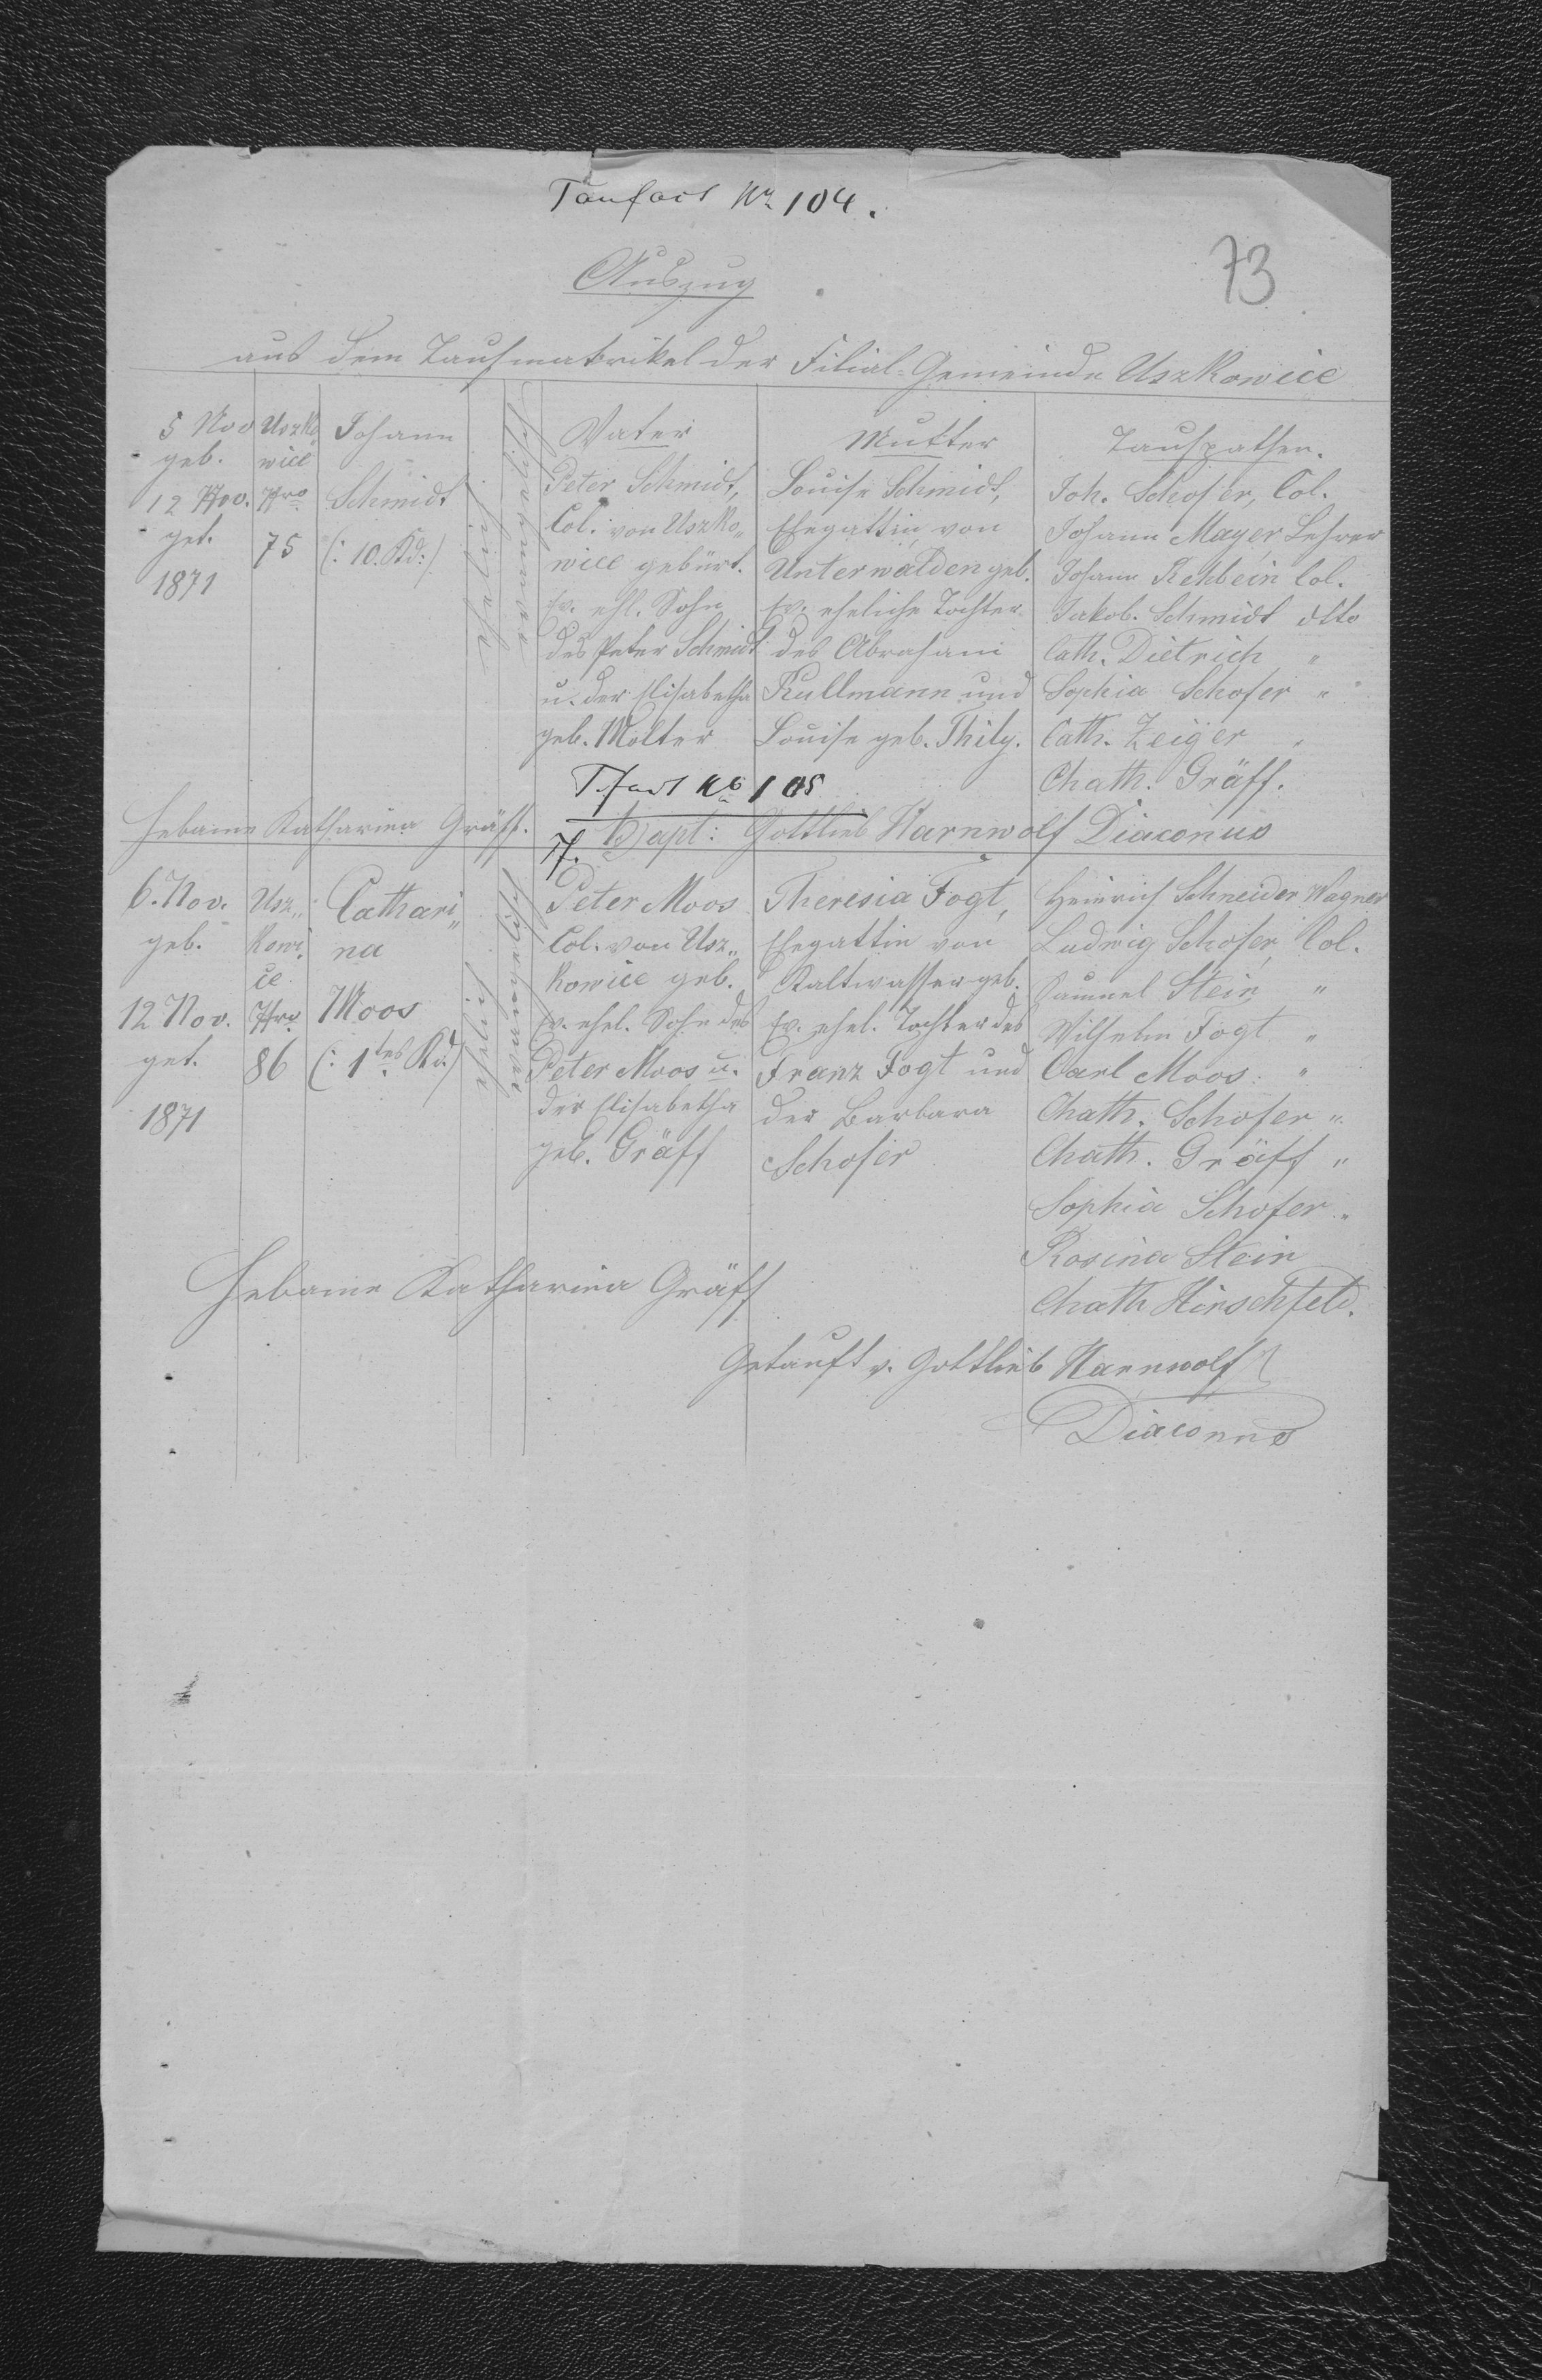 Taufact Nr 104.
73
Auszug
aus dem Taufmatrikel der Filial-Gemeinde Uszkowice
5 Nov
geb.
12 Nov.
get.
1871
Uszko
wice
Nro
75
Johann
Schmidt
(: 10. Kd:)
ehelich
evangelisch
Vater
Peter Schmidt,
Col. von Uszko„
wice gebürt.
Ev. ehl. Sohn
des Peter Schmidt
u. der Elisabetha
geb. Molter
Mutter
Louise Schmidt,
Ehegattin von
Unterwalden geb.
Ev. eheliche Tochter
des Abraham
Kullmann und
Louise geb. Thily.
Taufpathen.
Joh. Schofer, Col.
Johann Mayer, Lehrer
Johann Rehbein Col.
Jakob. Schmidt dtto
Cath. Dietrich "
Sophia Schofer "
Cath. Zeiger "
Chath. Gräff.
T. fact No 105
Hebame Katharina Gräff.
Bapt: Gottlieb Harnwolf Diaconus
6. Nov.
geb.
12 Nov.
get.
1871
Usz„
kowi
ce
Nro
86
Cathari„
na
Moos
(: 1tes Kd:)
ehelich
evangelisch
Peter Moos
Col. von Usz„
kowice geb.
Ev. ehel. Sohn des
Peter Moos u.
der Elisabetha
geb. Gräff
Theresia Fogt,
Ehegattin von
Kaltwasser geb.
Ev. ehel. Tochter des
Franz Fogt und
der Barbara
Schofer
Heinrich Schneider Wagner
Ludwig Schofer, Col.
Samuel Stein "
Wilhelm Fogt "
Carl Moos "
Chath. Schofer "
Chath. Gräff "
Sophia Schofer "
Rosina Stein
Chath Hirschfeld.
Hebame Katharina Gräff
Getauft v. Gottlieb Harnwolf
Diaconus